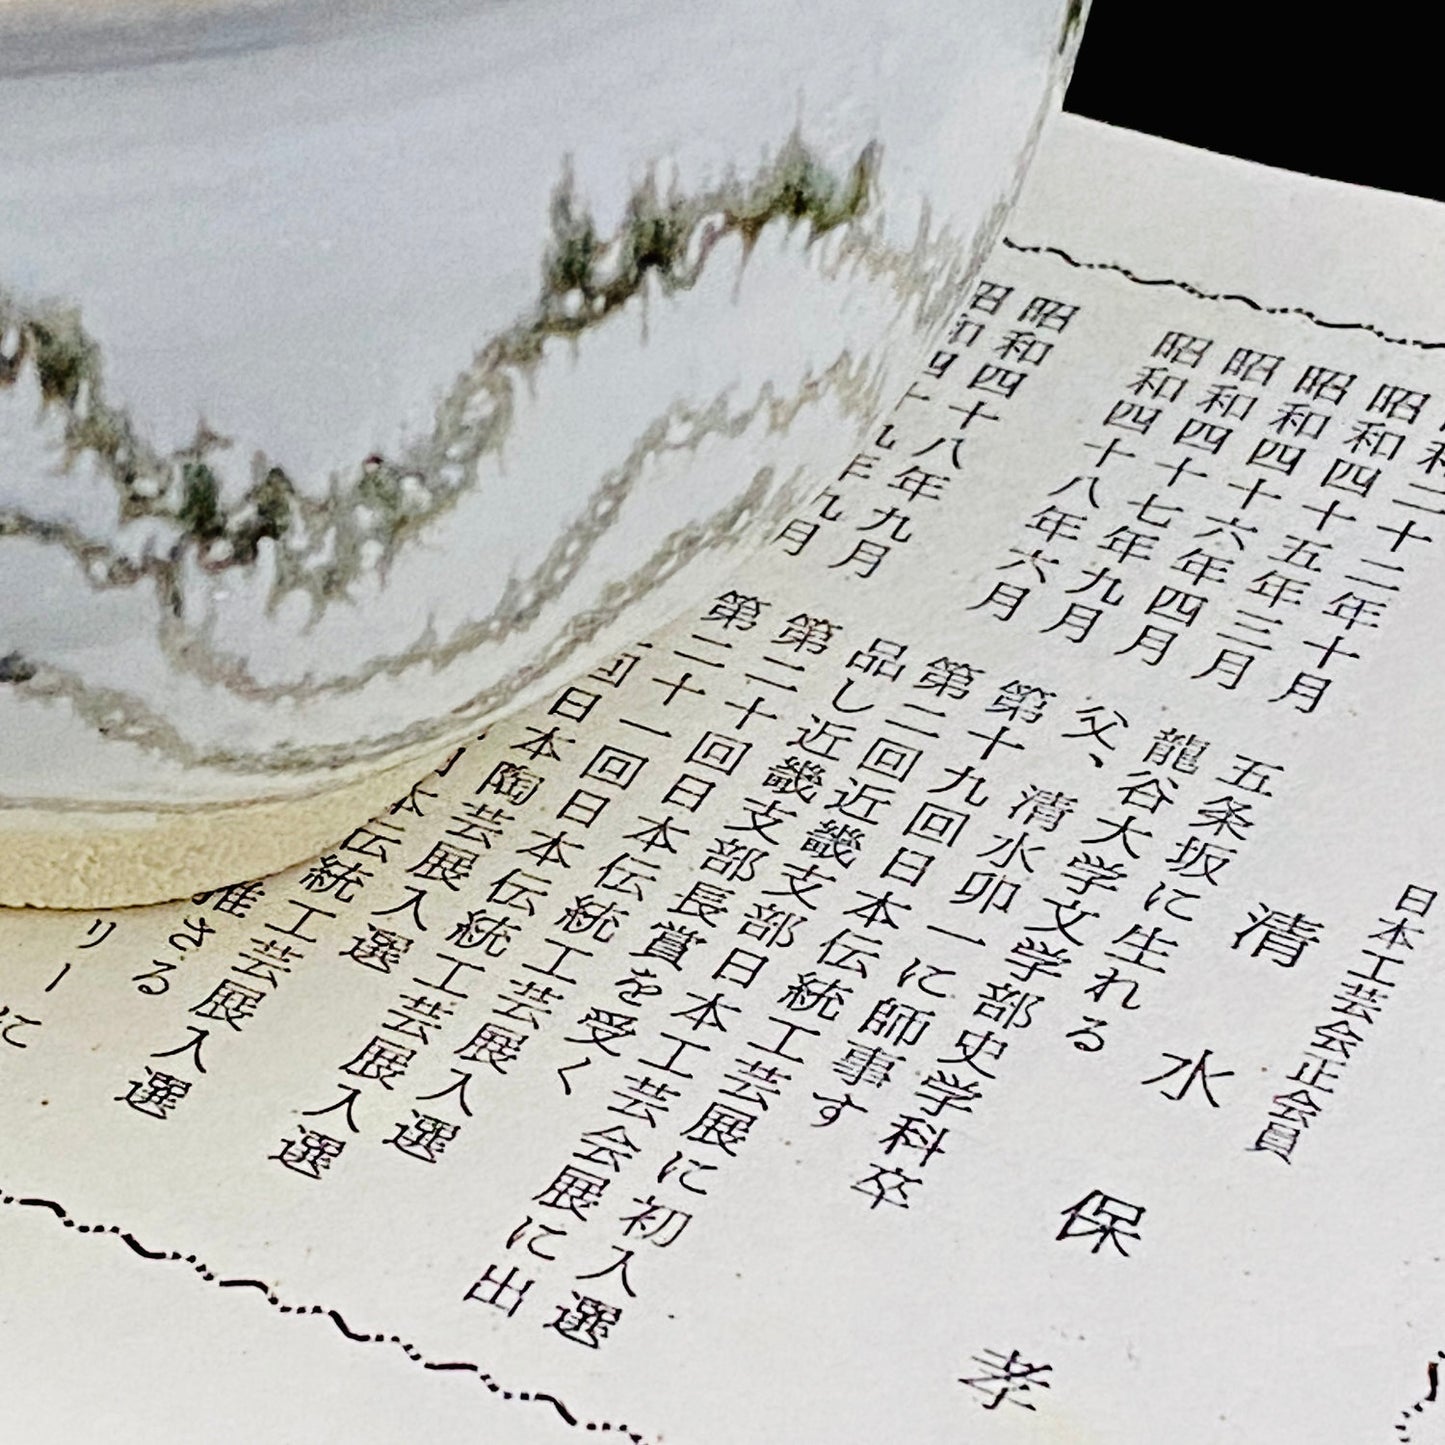 日本工芸会正会員
清水保孝
昭和二十二年十月 五条坂に生れる
昭和四十五年三月 龍谷大学文学部史学科卒
昭和四十六年四月 父、清水卯一に師事す
昭和四十七年九月 第十九回日本伝統工芸展に初入選
昭和四十八年六月 第二回近畿支部日本工芸会展に出
品し近畿支部長賞を受く
昭和四十八年九月 第二十回日本伝統工芸展入選
昭和四十九年九月 第二十一回日本伝統工芸展入選
回日本陶芸展入選
本伝統工芸展入選
推さる
リーに